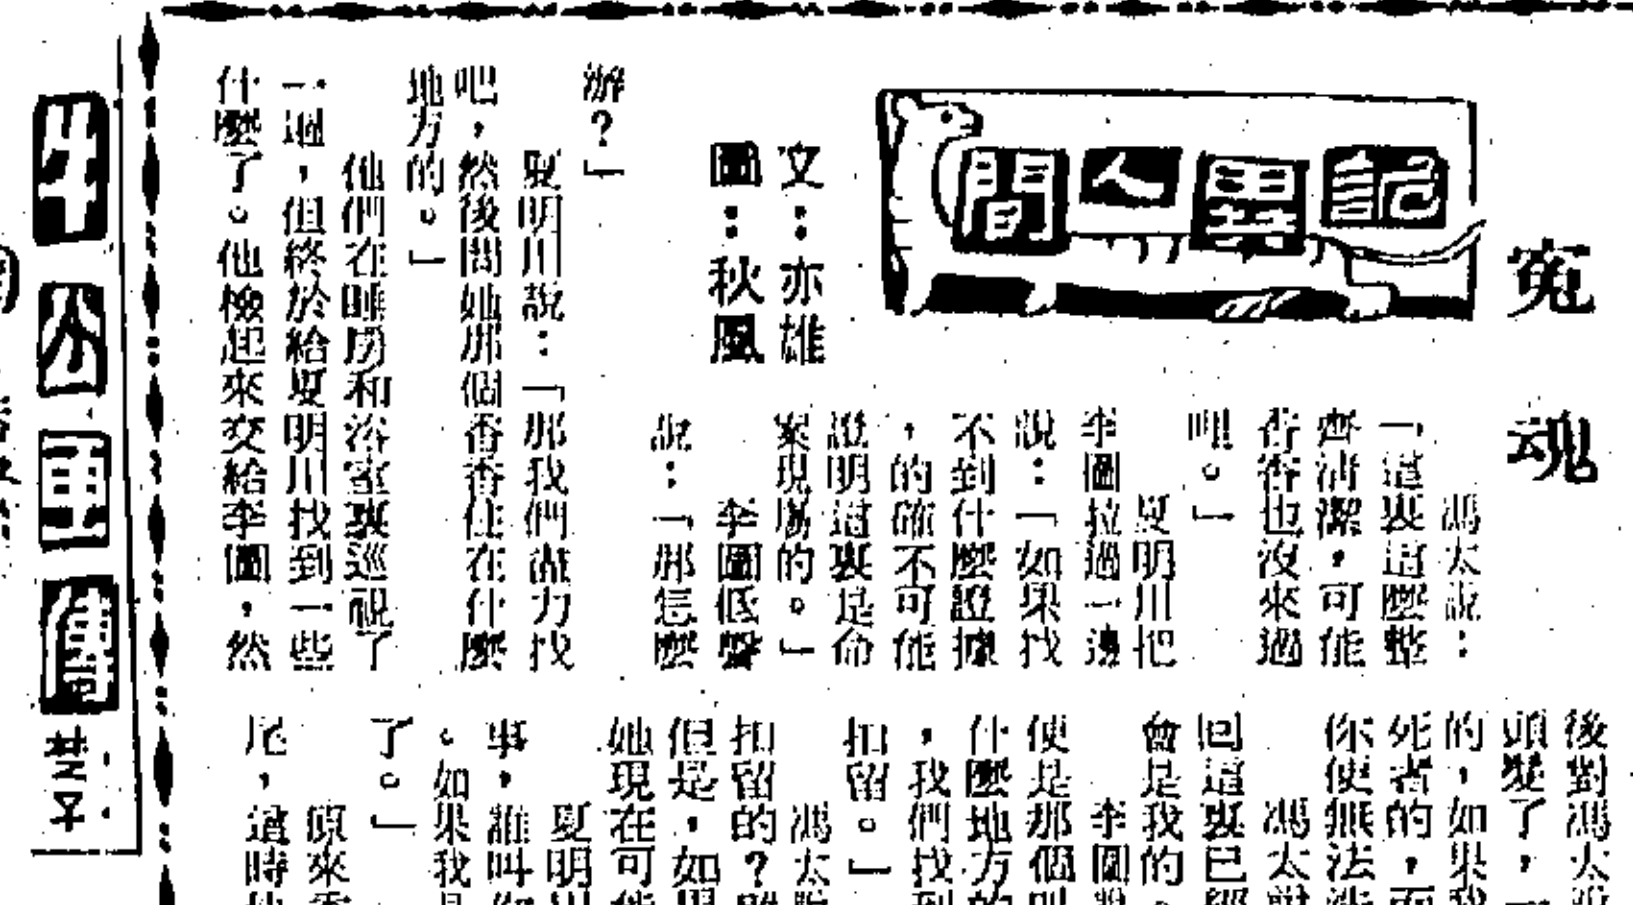 冤魂
記異人間
文：亦雄
圖：秋風
馮太說：
「這裏這麼整
齊清潔，可能
香香也沒來過
哩。」
夏明川把
李圖拉過一邊
說：「如果找
不到什麼證據
，的確不可能
證明這裏是命
案現場的。」
李圖低聲
說：「那怎麼
辦？」
夏明川說：「那我們盡力找
吧，然後問她那個香香住在什麼
地方的。」
他們在睡房和浴室裏巡視了
一遍，但終於給夏明川找到一些
什麼了。他檢起來交給李圖，然
後對馮太說
頭髮了，
的，如果我
死者的，而
你便無法洗
馮太說
回這裏已經
會是我的
李圖說
便是那個叫
什麼地方的
，我們找到
扣留。」
馮太說
扣留的？
但是，如果
她現在可能
夏明川
事，誰叫你
。如果我是
了。」
原來香
尾，這時他
牛公再傳